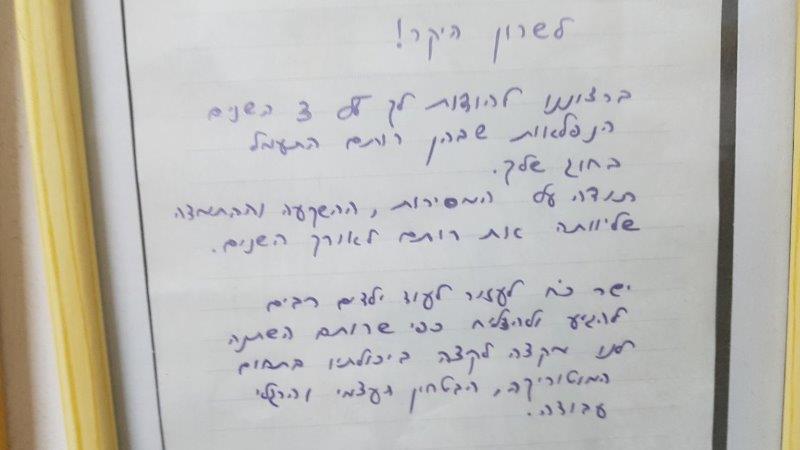 לשרון היקר!
ברצוננו להודות לך על 3 השנים
הנפלאות שבהן רותם התעמל
בחוג שלך.
תודה על המסירות, ההשקעה וההתמדה
שליוותה את רותם לאורך השנים.
ישר כח לעזור לעוד ילדים רבים
להגיע ולהצליח כפי שרותם השתנה
לנו מקצה לקצה ביכולתיו בתחום
המוטוריקה, הבטחון העצמי והרגלי
עבודה.